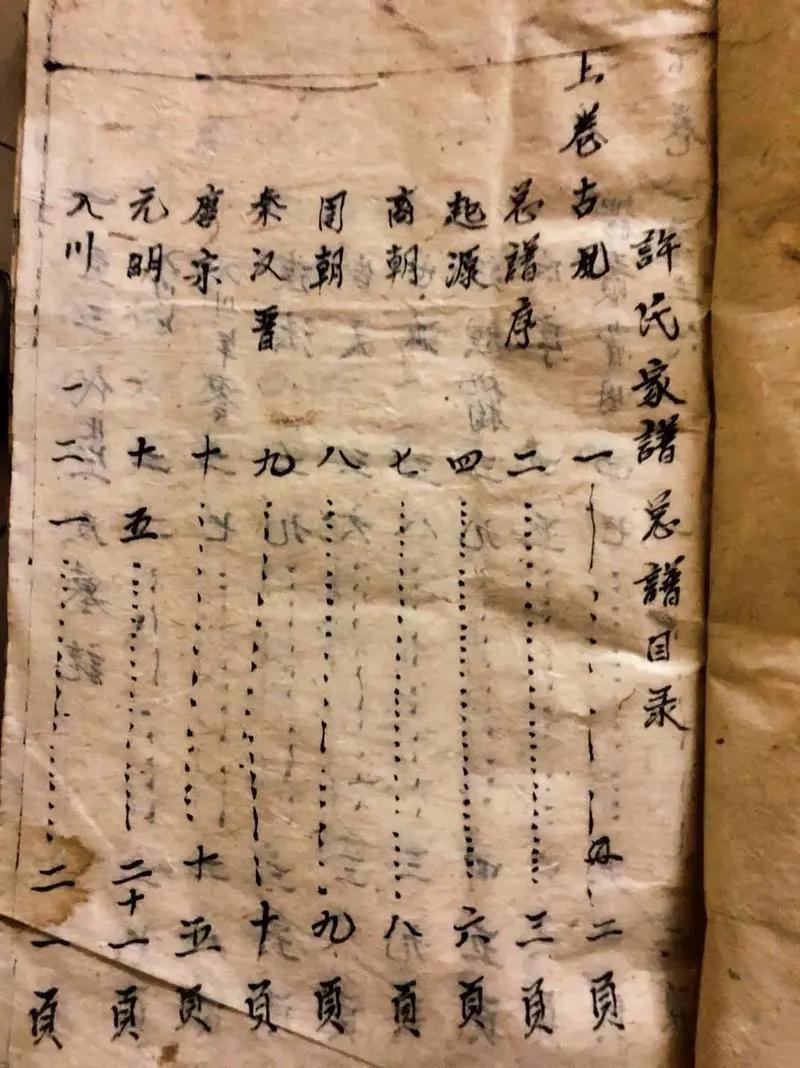 許氏家譜总譜目录
上卷古风 一 二頁
总譜序 二 三頁
起源 四 六頁
商朝 七 八頁
周朝 八 九頁
秦汉晋 九 十頁
唐宋 十 十五頁
元明 十五 二十一頁
入川 一二一 二一頁